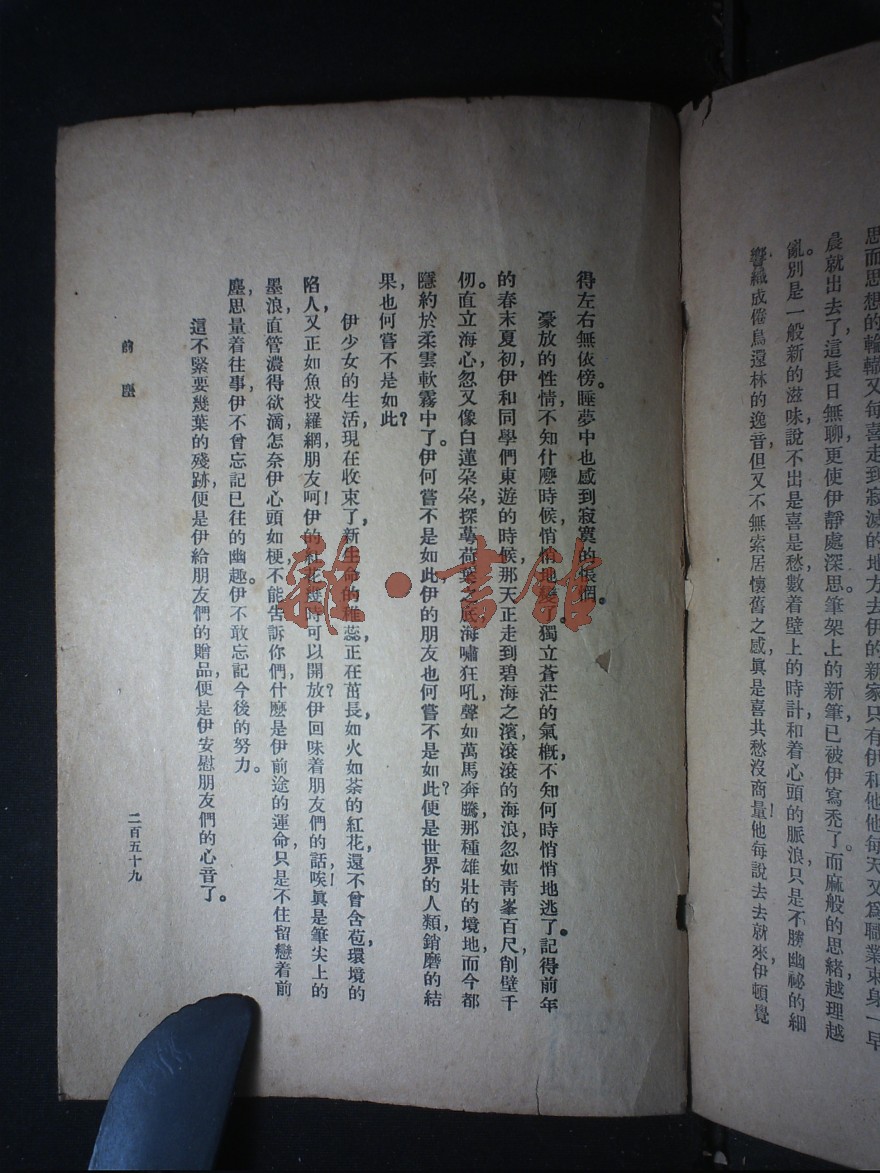 思而思想的輪轆又每喜走到寂滅的地方去伊的新家只有伊和他他每天又爲職業束身一早
晨就出去了，這長日無聊，更使伊靜處深思。筆架上的新筆已被伊寫禿了。而麻般的思緒越理越
亂。別是一般新的滋味，說不出是喜是愁，數着壁上的時計，和着心頭的脈浪，只是不勝幽祕的細
響，織成倦鳥還林的逸音，但又不無索居懷舊之感，眞是喜共愁沒商量！他每說去去就來，伊頓覺
得左右無依傍。睡夢中也感到寂寞的悵惘。
豪放的性情，不知什麼時候悄悄地變了。獨立蒼茫的氣概，不知何時悄悄地逃了。記得前年
的春末夏初，伊和同學們東遊的時候，那天正走到碧海之濱，滾滾的海浪，忽如靑峯百尺，削壁千
仞。直立海心，忽又像白蓮朵朵，探萼荷葉之底，海嘯狂吼，聲如萬馬奔騰，那種雄壯的境地，而今都
隱約於柔雲軟霧中了。伊何嘗不是如此，伊的朋友也何嘗不是如此？便是世界的人類，銷磨的結
果，也何嘗不是如此？
伊少女的生活，現在收束了，新生命的稚蕊，正在茁長，如火如荼的紅花，還不曾含苞，環境的
陷人，又正如魚投羅網，朋友呵！伊的紅花幾時可以開放？伊回味着朋友們的話，唉！眞是筆尖上的
墨浪，直管濃得欲滴，怎奈伊心頭如梗，不能告訴你們，什麼是伊前途的運命，只是不住留戀着前
塵，思量着往事，伊不曾忘記已往的幽趣。伊不敢忘記今後的努力。
這不緊要幾葉的殘跡，便是伊給朋友們的贈品，便是伊安慰朋友們的心音了。
前塵
二百五十九
雜·書館